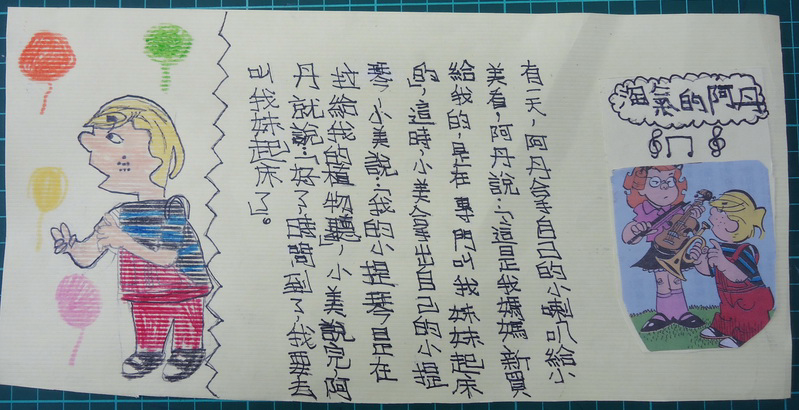 淘氣的阿丹
有一天，阿丹拿自己的小喇叭給小
美看，阿丹說：「這是我媽媽新買
給我的，是在專門叫我妹妹起床
的」，這時小美拿出自己的小提
琴，小美說：「我的小提琴是在
拉給我的植物聽」，小美說完阿
丹就說：「好了，時間到了，我要去
叫我妹起床了」。